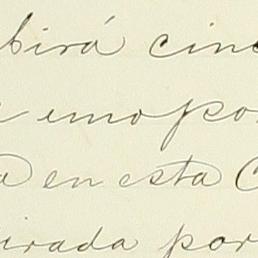 birá cinc
emopo
a en esta C
irada por